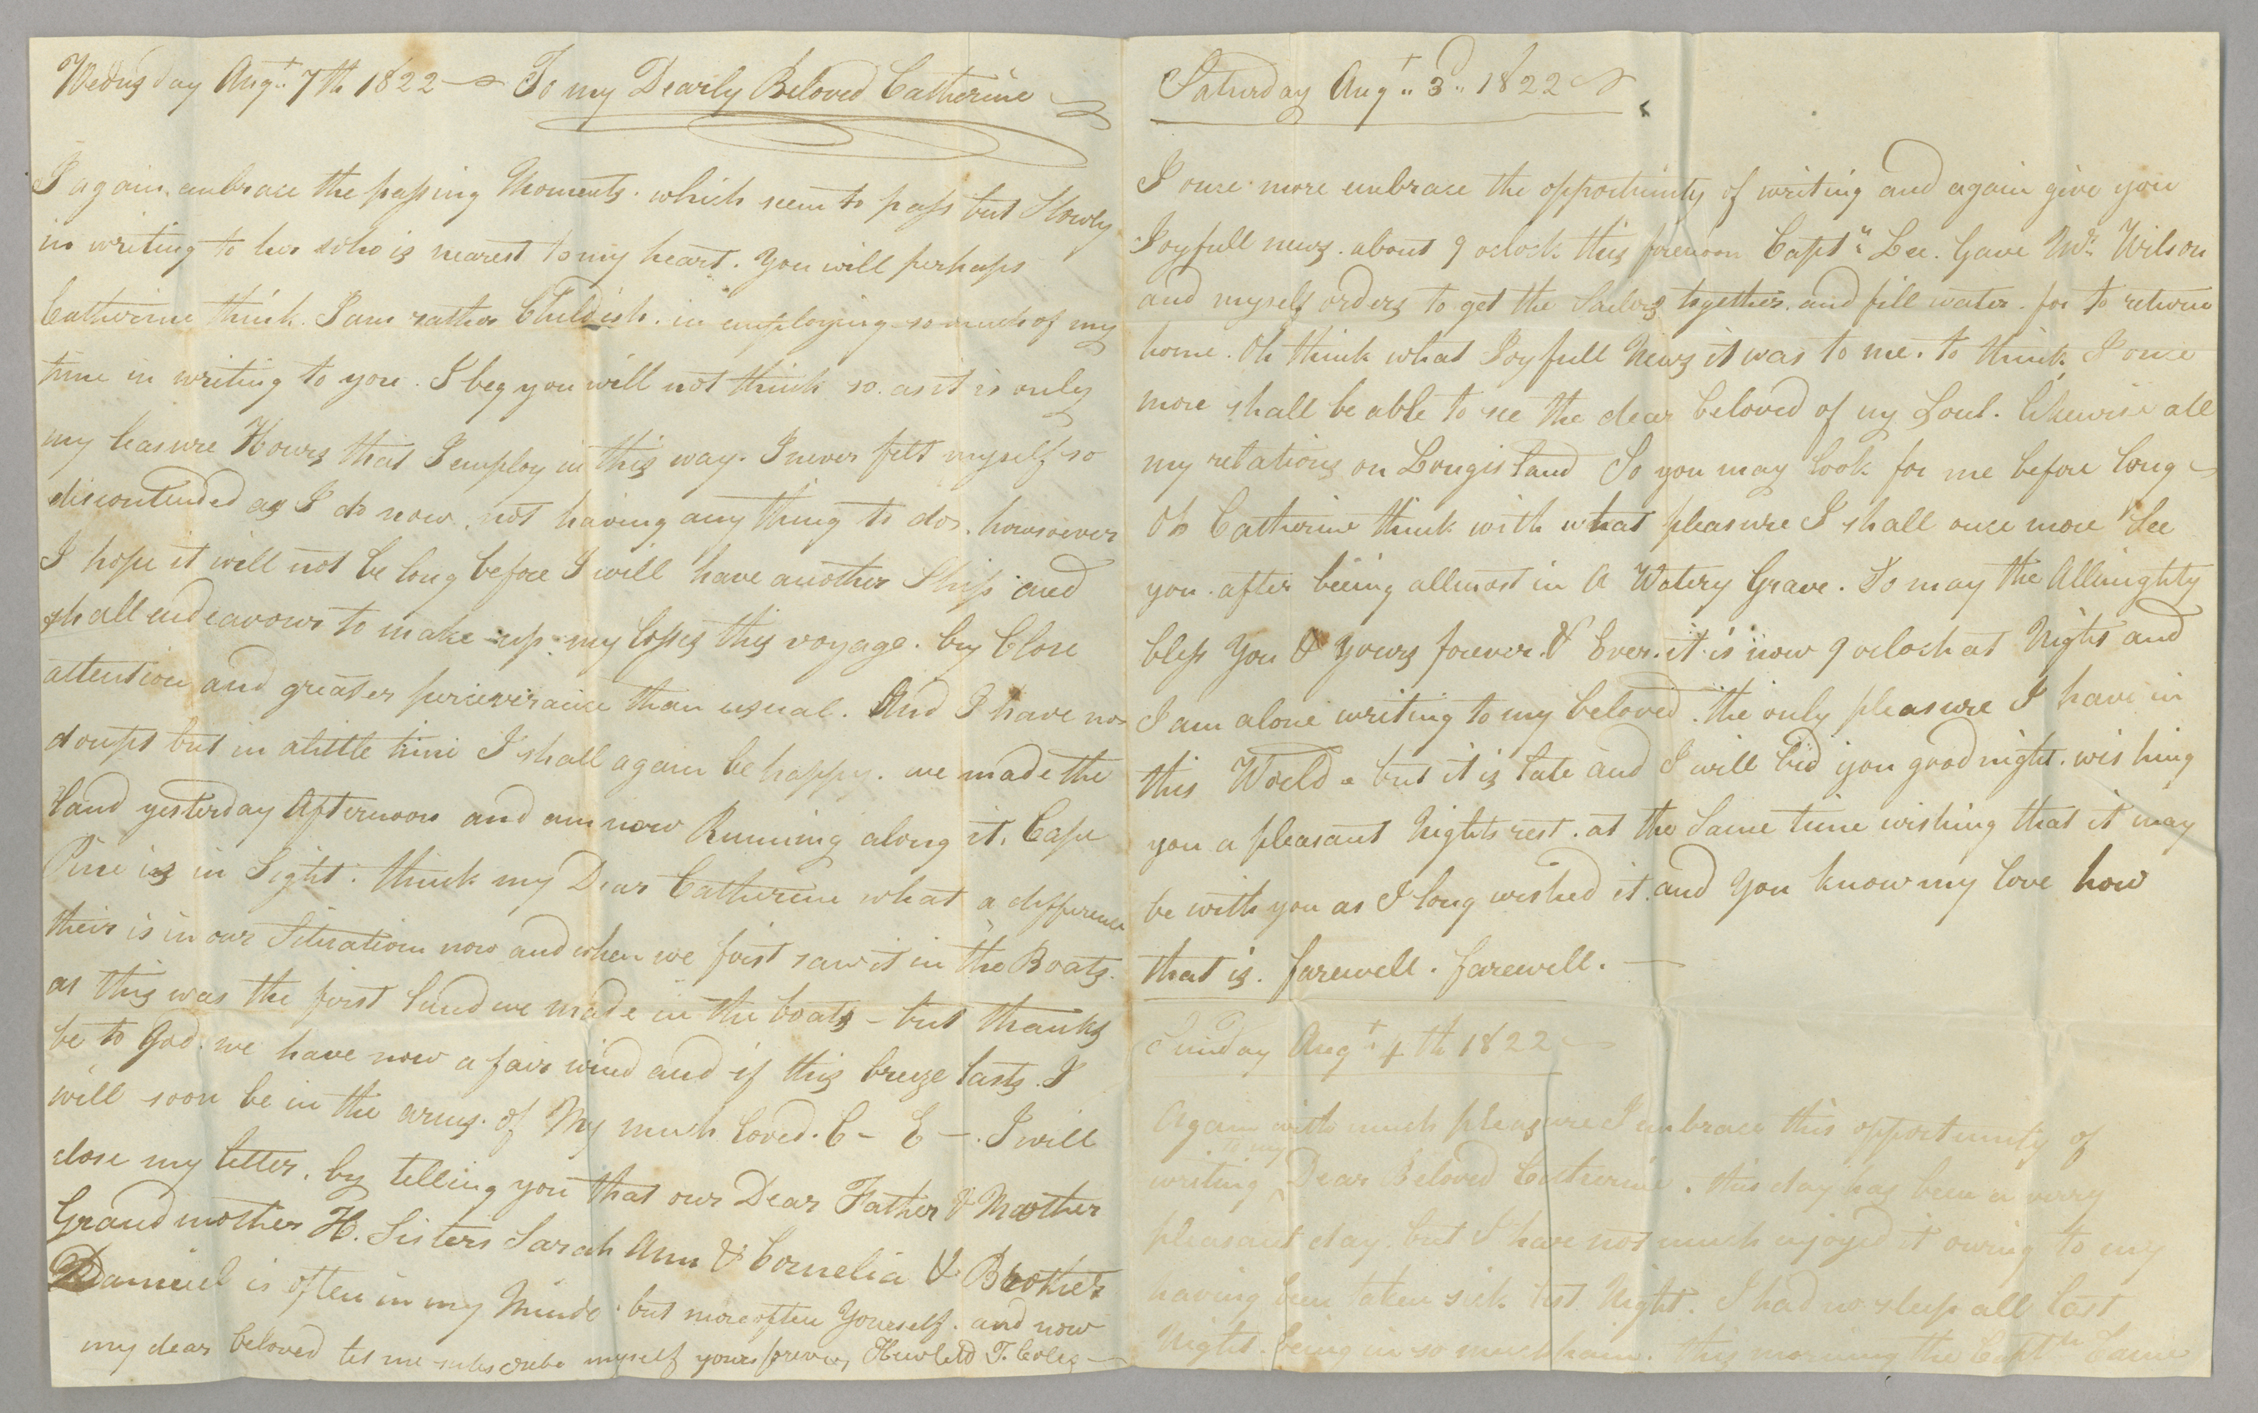 Wednsday Augt. 7th 1822 — To my Dearly Beloved Catherine
I again embrace the passing Moments. which seem to pass but Slowly
in writing to her who is nearest to my heart. You will perhaps
Catherine think. I am rather Childish. in employing so much of my
time in writing to you. I beg you will not think so. as it is only
my leasure Hours that I employ in this way. I never felt myself so
discontended as I do now. not having any thing to do. howsoever
I hope it will not be long before I will have another Ship and
shall endeavour to make up my losses this voyage. by Close
attention and greater perseverance than usual. And I have no
doupt but in a little time I shall again be happy. we made the
land yesterday Afternoon and am now Running along it. Cape
Pine is in Sight. think my Dear Catherine what a difference
their is in our Situation now and when we first saw it in the Boats.
as this was the first land we made in the boats – but thanks
be to God. we have now a fair wind and if this breeze lasts. I
will soon be in the arms. of My much loved. C – E –. I will
close my letter. by telling you that our Dear Father & Mother
Grandmother H. Sisters Sarah Ann & Cornelia & Brother
Daniel is often in my Minde. but more often Yourself. and now
my dear beloved let me subscribe myself yours forever, Hewlett T. Coles —
Saturday Augt. 3d. 1822
I once more embrace the opportunity of writing and again give you
Joyfull news. about 9 oclock this forenoon Captn. Lee. Gave Mr. Wilson
and myself orders to get the Sailors together. and fill water. for to return
home. Oh think what Joyfull News it was to me. to think I once
more shall be able to see the dear beloved of my Soul. likewise all
my relations on Longisland So you may look for me before long –
Oh Catherine think with what pleasure I shall once more See
you. after being allmost in A Watery Grave. So may the Allmighty
bless You & Yours forever. & Ever. it is now 9 oclock at Night and
I am alone writing to my beloved. the only pleasure I have in
this World – but it is late and I will bid you good night. wishing
you a pleasant Nights rest. at the Same time wishing that it may
be with you as I long wished it. and You know my love how
that is. farewell. farewell. —
Sunday Augt. 4th 1822 —
Again with much pleasure I embrace this opportunity of
writing to my Dear Beloved Catherine. this day has been a verry
pleasant day. but I have not much injoyed it owing to my
having been taken sick last Night. I had no sleep all last
Night. being in so much pain. this morning the Captn Came